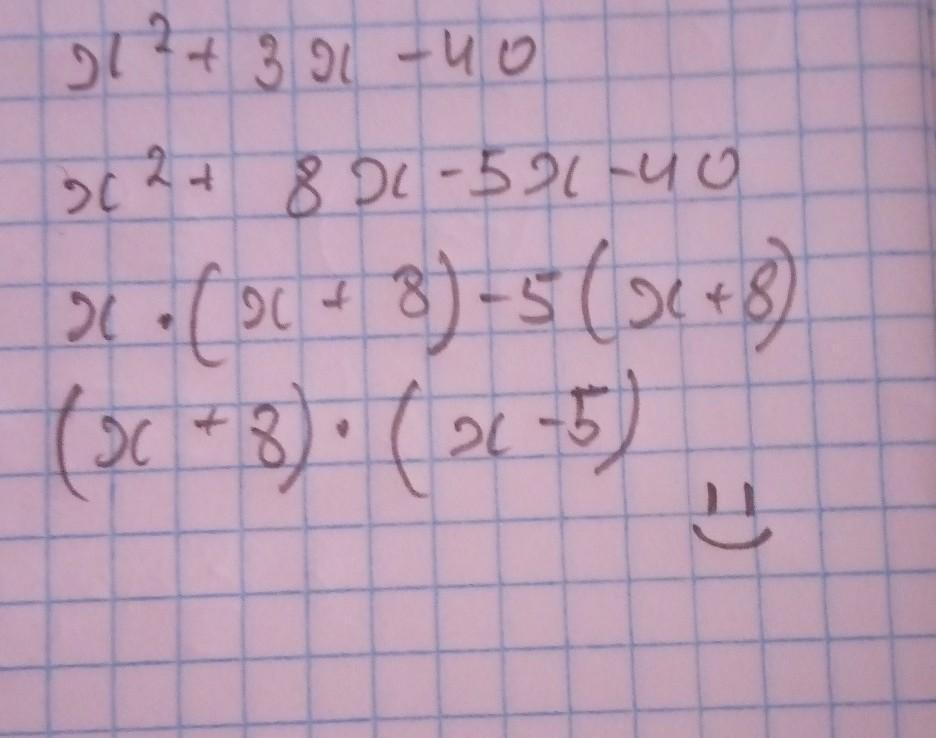 x² + 3x - 40
x² + 8x - 5x - 40
x · (x + 8) - 5 (x + 8)
(x + 8) · (x - 5)